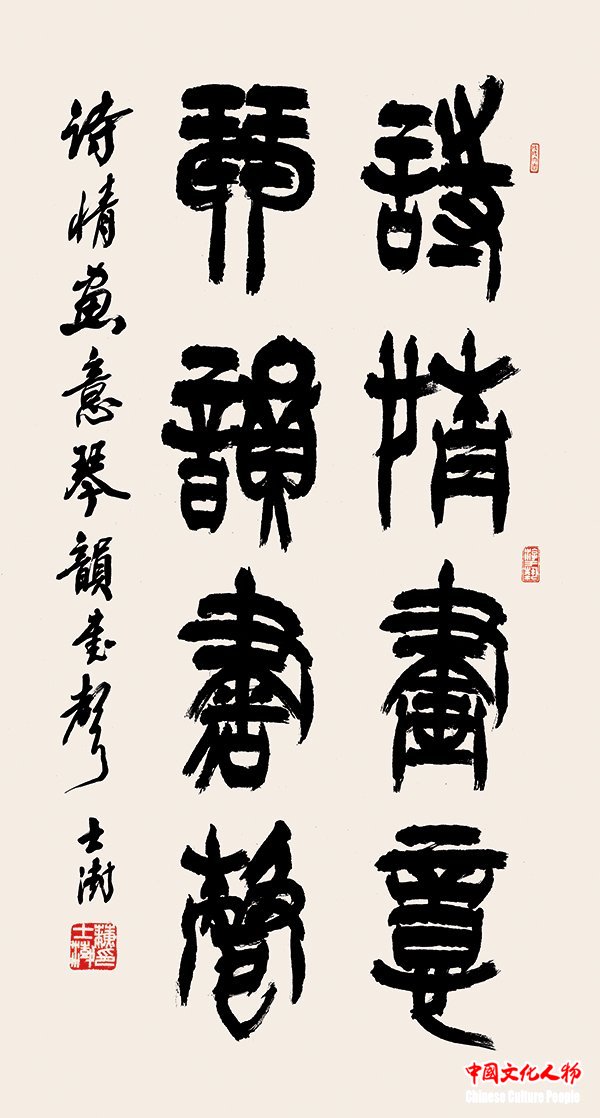 詩情畫意
琴韻書聲
诗情画意琴韻书声 士澍
中國文化人物
Chinese Culture People